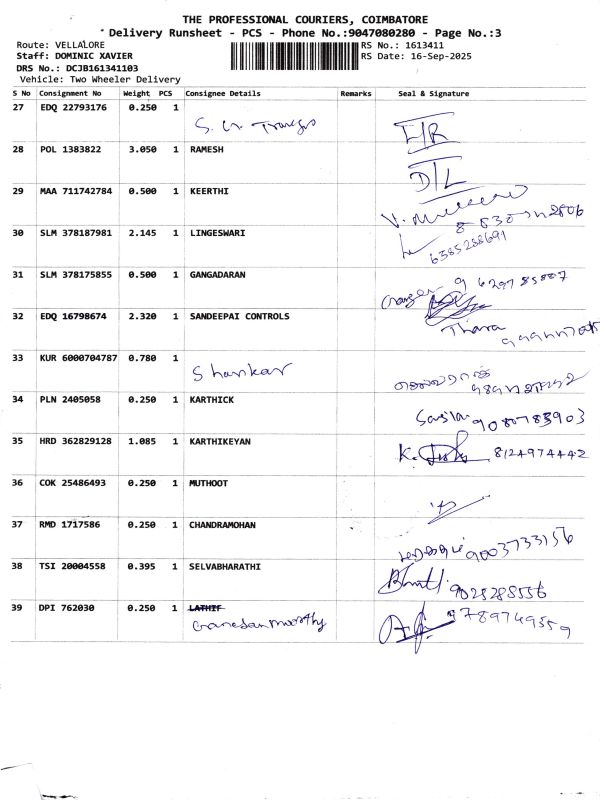 THE PROFESSIONAL COURIERS, COIMBATORE
Delivery Runsheet - PCS - Phone No.:9047080280 - Page No.:3
Route: VELLALORE
Staff: DOMINIC XAVIER
DRS No.: DCJB161341103
Vehicle: Two Wheeler Delivery
RS No.: 1613411
RS Date: 16-Sep-2025
S No Consignment No Weight PCS Consignee Details Remarks Seal & Signature
27 EDQ 22793176 0.250 1
28 POL 1383822 3.050 1 RAMESH
D/L
29 MAA 711742784 0.500 1 KEERTHI
30 SLM 378187981 2.145 1 LINGESWARI
6385288691
31 SLM 378175855 0.500 1 GANGADARAN
32 EDQ 16798674 2.320 1 SANDEEPAI CONTROLS
Thara
33 KUR 6000704787 0.780 1
Shankar
34 PLN 2405058 0.250 1 KARTHICK
9080783903
35 HRD 362829128 1.085 1 KARTHIKEYAN
8124974442
36 COK 25486493 0.250 1 MUTHOOT
37 RMD 1717586 0.250 1 CHANDRAMOHAN
9003733156
38 TSI 20004558 0.395 1 SELVABHARATHI
9025288556
39 DPI 762030 0.250 1 LATHIF
Ganesanmoorthy
9789749559